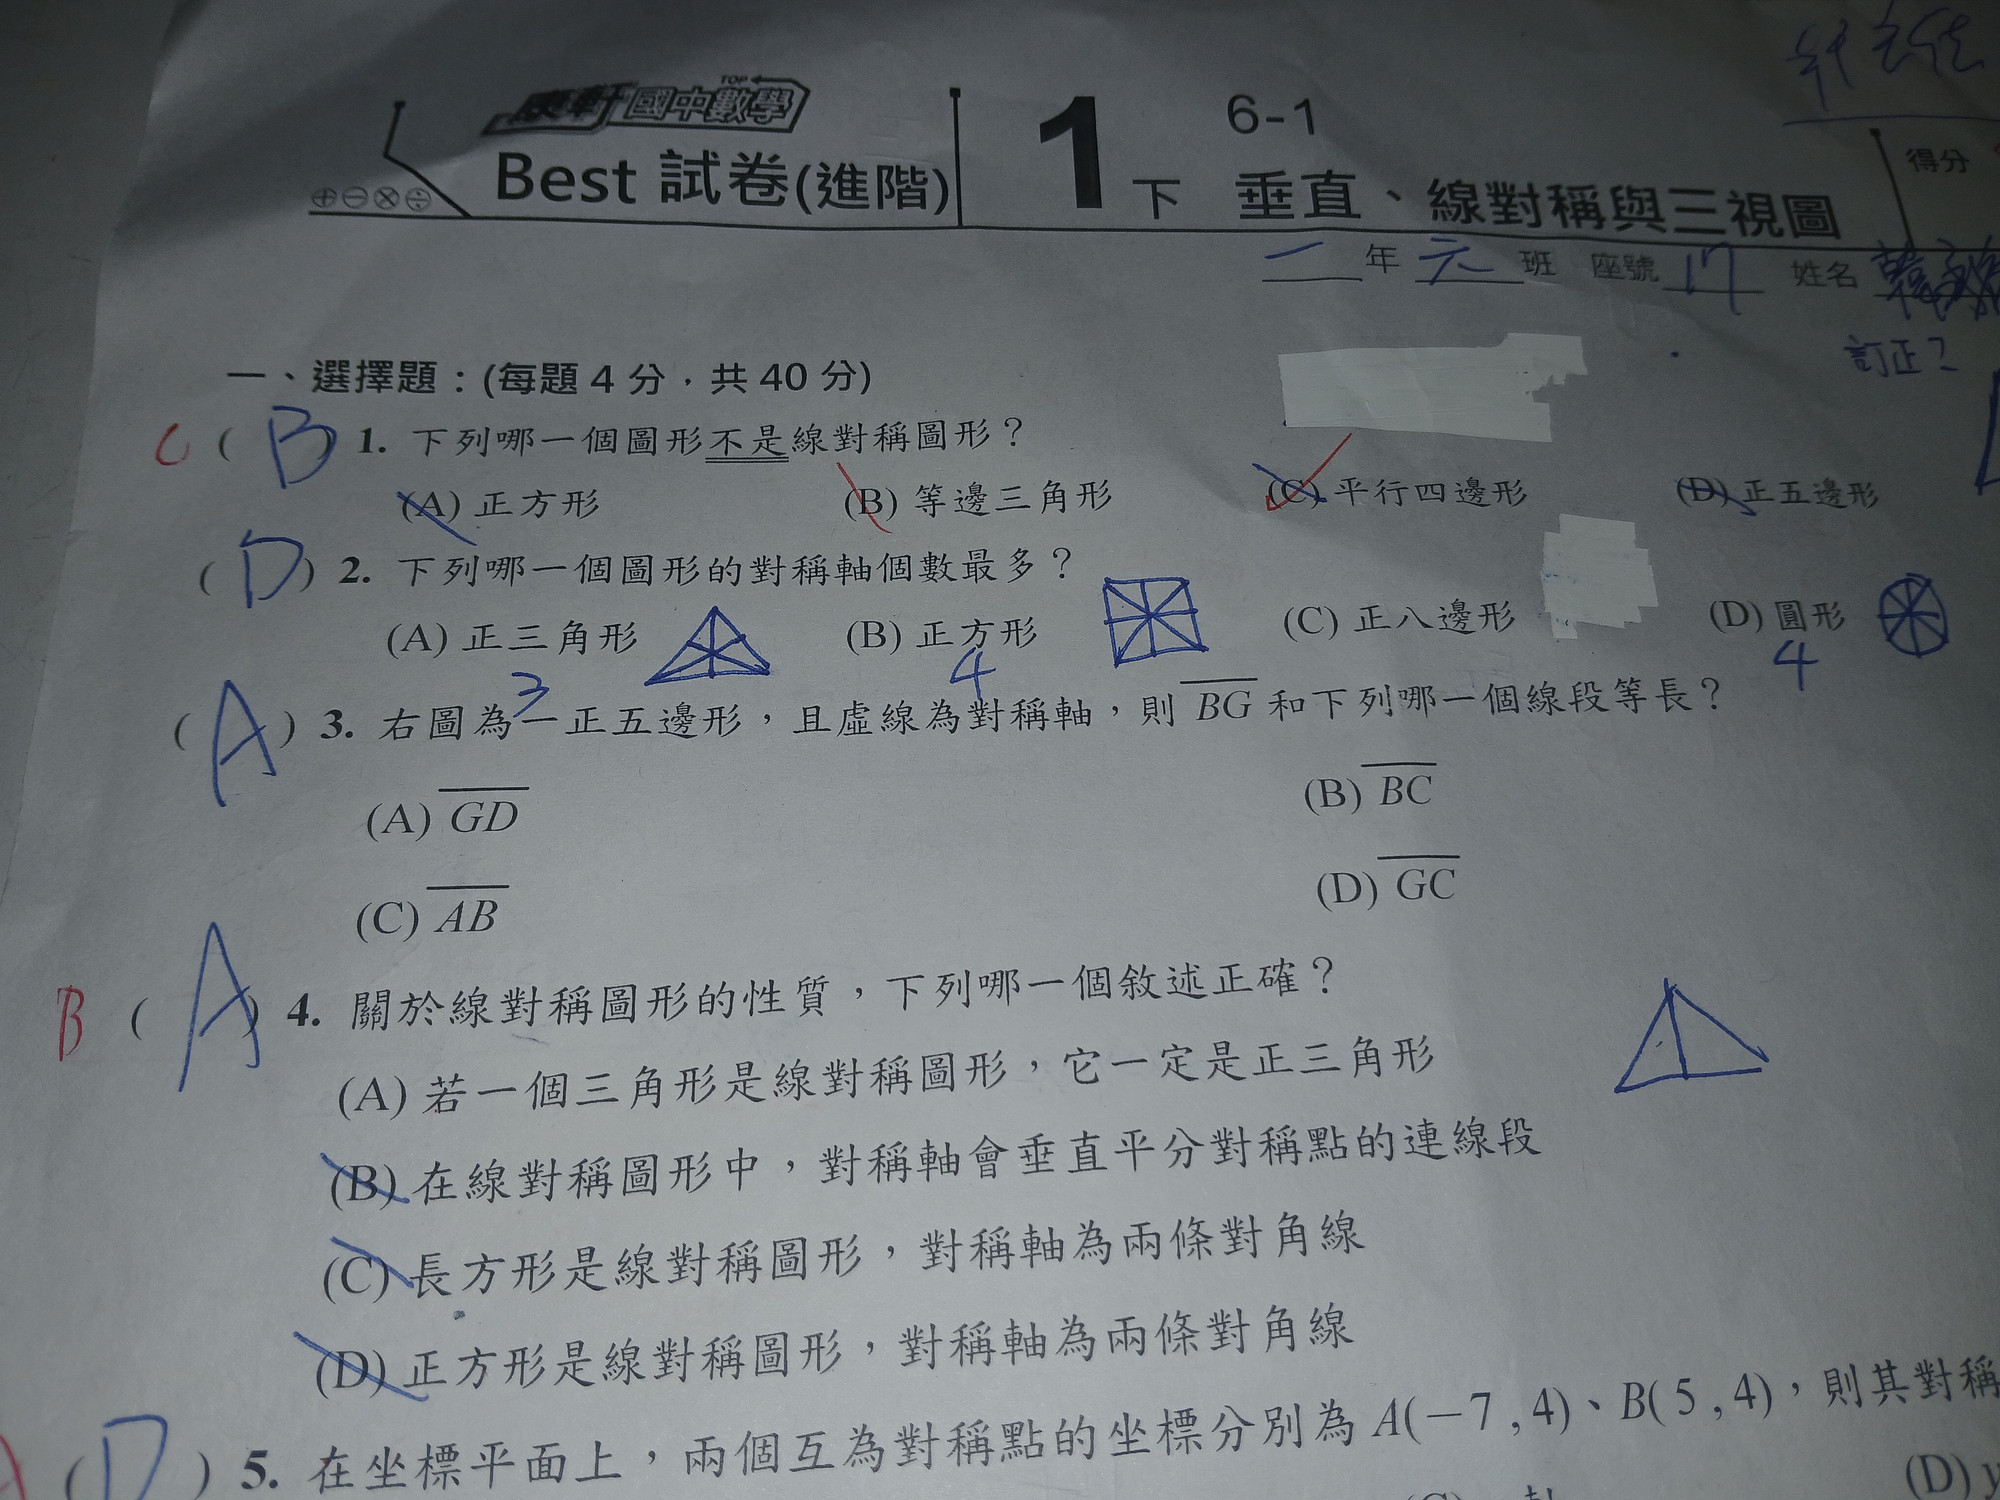 康軒 國中數學 TOP
Best 試卷(進階)
1下
6-1
垂直、線對稱與三視圖
得分
一年 元 班 座號 17 姓名
訂正2
一、選擇題：(每題 4 分，共 40 分)
C ( B ) 1. 下列哪一個圖形不是線對稱圖形？
(A) 正方形 (B) 等邊三角形 (C) 平行四邊形 (D) 正五邊形
( D ) 2. 下列哪一個圖形的對稱軸個數最多？
(A) 正三角形 (B) 正方形 (C) 正八邊形 (D) 圓形
3 4 4
( A ) 3. 右圖為一正五邊形，且虛線為對稱軸，則 BG 和下列哪一個線段等長？
(A) GD (B) BC
(C) AB (D) GC
B ( A ) 4. 關於線對稱圖形的性質，下列哪一個敘述正確？
(A) 若一個三角形是線對稱圖形，它一定是正三角形
(B) 在線對稱圖形中，對稱軸會垂直平分對稱點的連線段
(C) 長方形是線對稱圖形，對稱軸為兩條對角線
(D) 正方形是線對稱圖形，對稱軸為兩條對角線
( D ) 5. 在坐標平面上，兩個互為對稱點的坐標分別為 A(－7 , 4)、B( 5 , 4)，則其對稱
(D) y